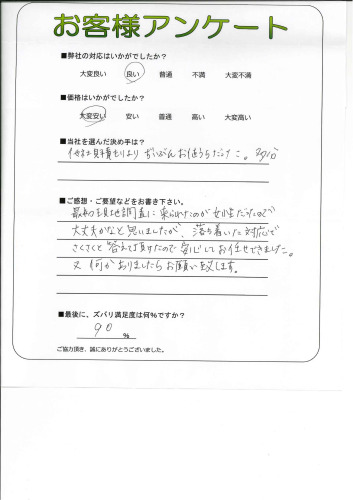 お客様アンケート
■弊社の対応はいかがでしたか？
大変良い 良い 普通 不満 大変不満
■価格はいかがでしたか？
大変安い 安い 普通 高い 大変高い
■当社を選んだ決め手は？
他社見積もりより ずいぶんお値うちだった。
■ご感想・ご要望などをお書き下さい。
最初現地調査に来られたのが女性だったので
大丈夫かなと思いましたが、落ち着いた対応で
さくさくと答えて頂けたので安心してお任せできました。
又何かありましたらお願い致します。
■最後に、ズバリ満足度は何%ですか？
90 %
ご協力頂き、誠にありがとうございました。